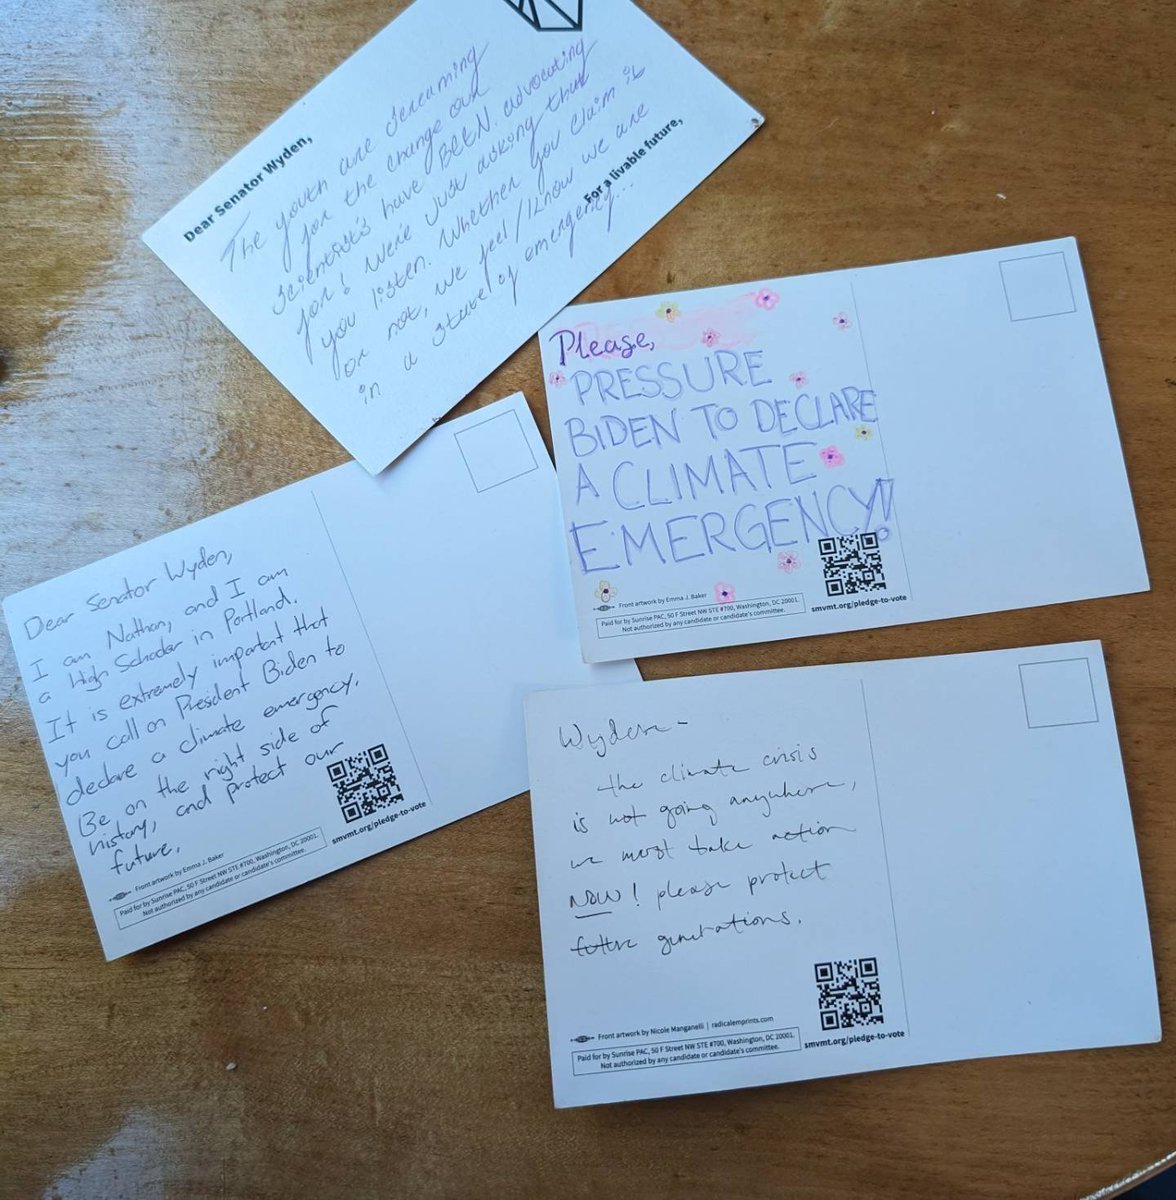 Dear Senator Wyden,
The youth are screaming
for the change our
scientist's have BEEN advocating
for! We're just asking that
you listen. Whether you claim it
or not, we feel/know we are
in a state of emergency...
For a livable future,
Please,
PRESSURE
BIDEN TO DECLARE
A CLIMATE
EMERGENCY!
Front artwork by Emma J. Baker
Paid for by Sunrise PAC, 50 F Street NW STE #700, Washington, DC 20001.
Not authorized by any candidate or candidate's committee.
smvmt.org/pledge-to-vote
Dear Senator Wyden,
I am Nathan, and I am
a High Schooler in Portland.
It is extremely important that
you call on President Biden to
declare a climate emergency.
Be on the right side of
history, and protect our
future.
Front artwork by Emma J. Baker
Paid for by Sunrise PAC, 50 F Street NW STE #700, Washington, DC 20001.
Not authorized by any candidate or candidate's committee.
smvmt.org/pledge-to-vote
Wyden-
the climate crisis
is not going anywhere,
we must take action
NOW! please protect
future generations.
Front artwork by Nicole Manganelli | radicalemprints.com
Paid for by Sunrise PAC, 50 F Street NW STE #700, Washington, DC 20001.
Not authorized by any candidate or candidate's committee.
smvmt.org/pledge-to-vote